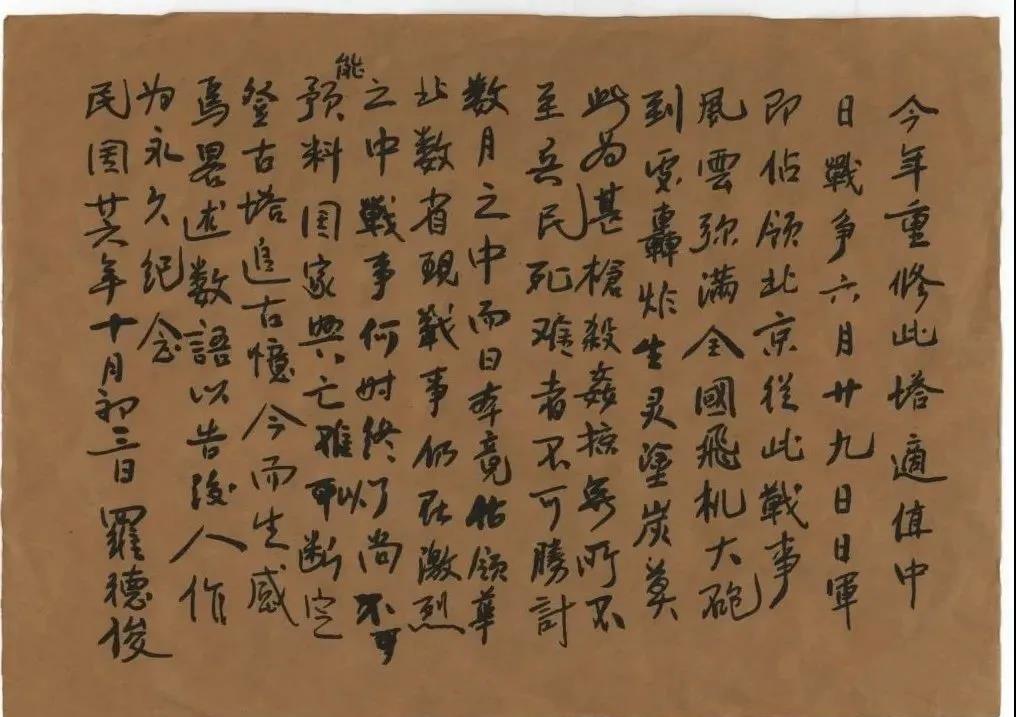 今年重修此塔適值中
日戰争六月廿九日日軍
即佔领北京從此戰事
風雲弥满全國飛机大砲
到處轟炸生灵塗炭莫
此为甚槍殺姦掠無所不
至兵民死难者不可勝計
数月之中而日本竟佔领華
北数省现戰事仍在激烈
之中戰事何时终了尚不可
能
预料国家興亡难以断定
登古塔追古憶今而生感
焉畧述数語以告後人作
为永久纪念
民国廿六年十月初三日羅德俊